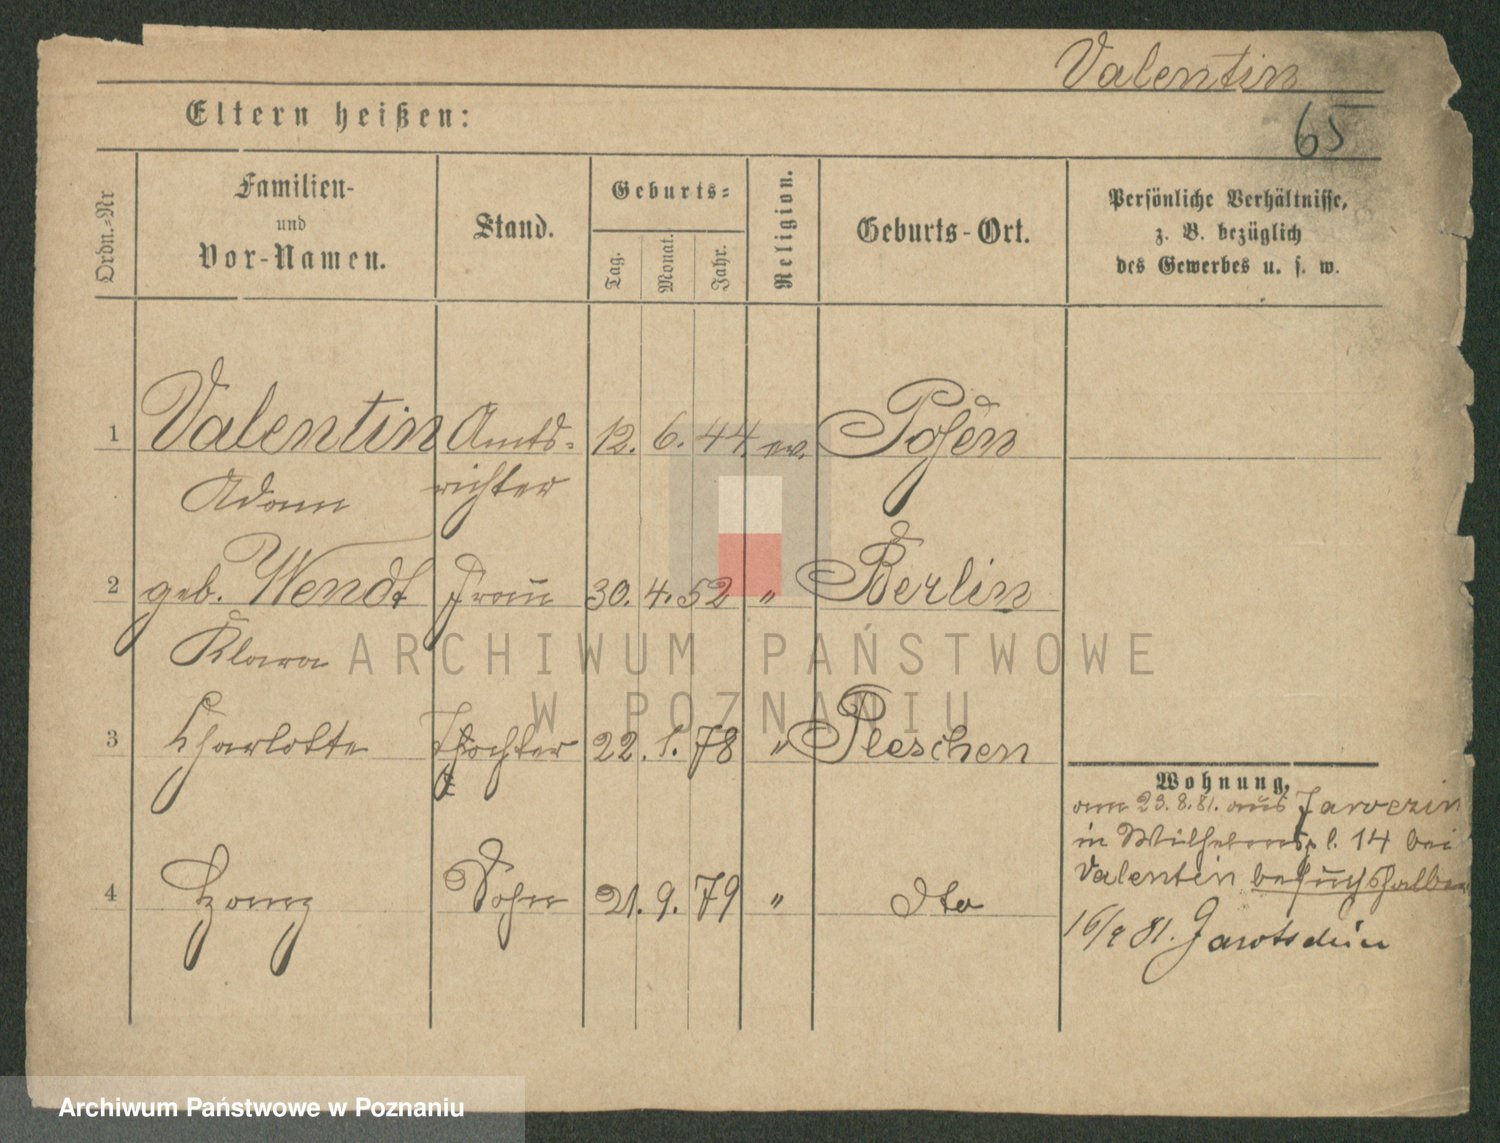 Valentin
65
Eltern heißen:
Ordn.-Nr
Familien-
und
Vor-Namen.
Stand.
Geburts-
Tag.
Monat.
Jahr.
Religion.
Geburts-Ort.
Persönliche Verhältnisse,
z. B. bezüglich
des Gewerbes u. s. w.
1 Valentin Amts- 12. 6. 44. ev. Posen
Adam richter
2 geb. Wendt Frau 30. 4. 52 " Berlin
Klara
ARCHIWUM PAŃSTWOWE
W POZNANIU
3 Charlotte Tochter 22. 1. 78 " Pleschen
4 Georg Sohn 21. 9. 79 " dto
Wohnung.
am 23.8.81. aus Jaroczin
in Wilhelmspl. 14 bei
Valentin besuchshalber
16/9 81. Jarotschin
Archiwum Państwowe w Poznaniu